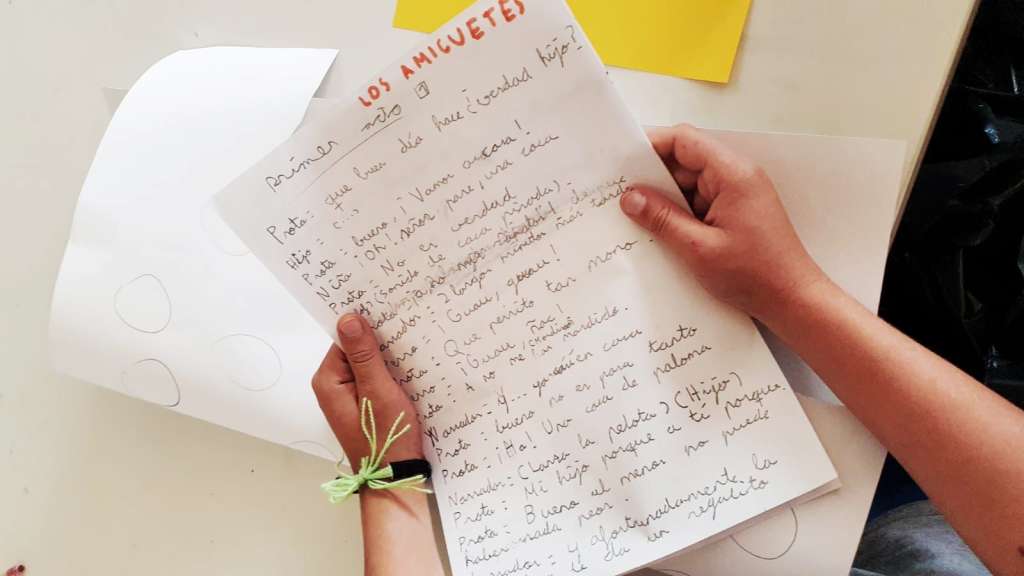 LOS AMIGUETES
primer acto 1
Prota = que buen día hace ¿verdad hijo?
Hijo = Sí...
Prota = ¡bueno, ¡Vamos a casa!
Niño = ¡OH! señor pare, una caca
Prota = No es verdad.
(Sonido de caca pisada) -
Narrador = 2 largos minutos más tarde
¡Guau, guau!
Prota = Que perrito tan mono.
¡Guau, ñac!
A no me han mordido.
Narrador = Y... también caca
Prota = bueno no es para tanto
Prota = ¡Ha! Una caca de paloma
Narrador = (Lanza la pelota) (Hijo)
Prota = Mi hijo porque a ti porque.
Prota = Bueno al menos no puede
haber nada peor
Narrador = Y afortunadamente la
le da un regalito